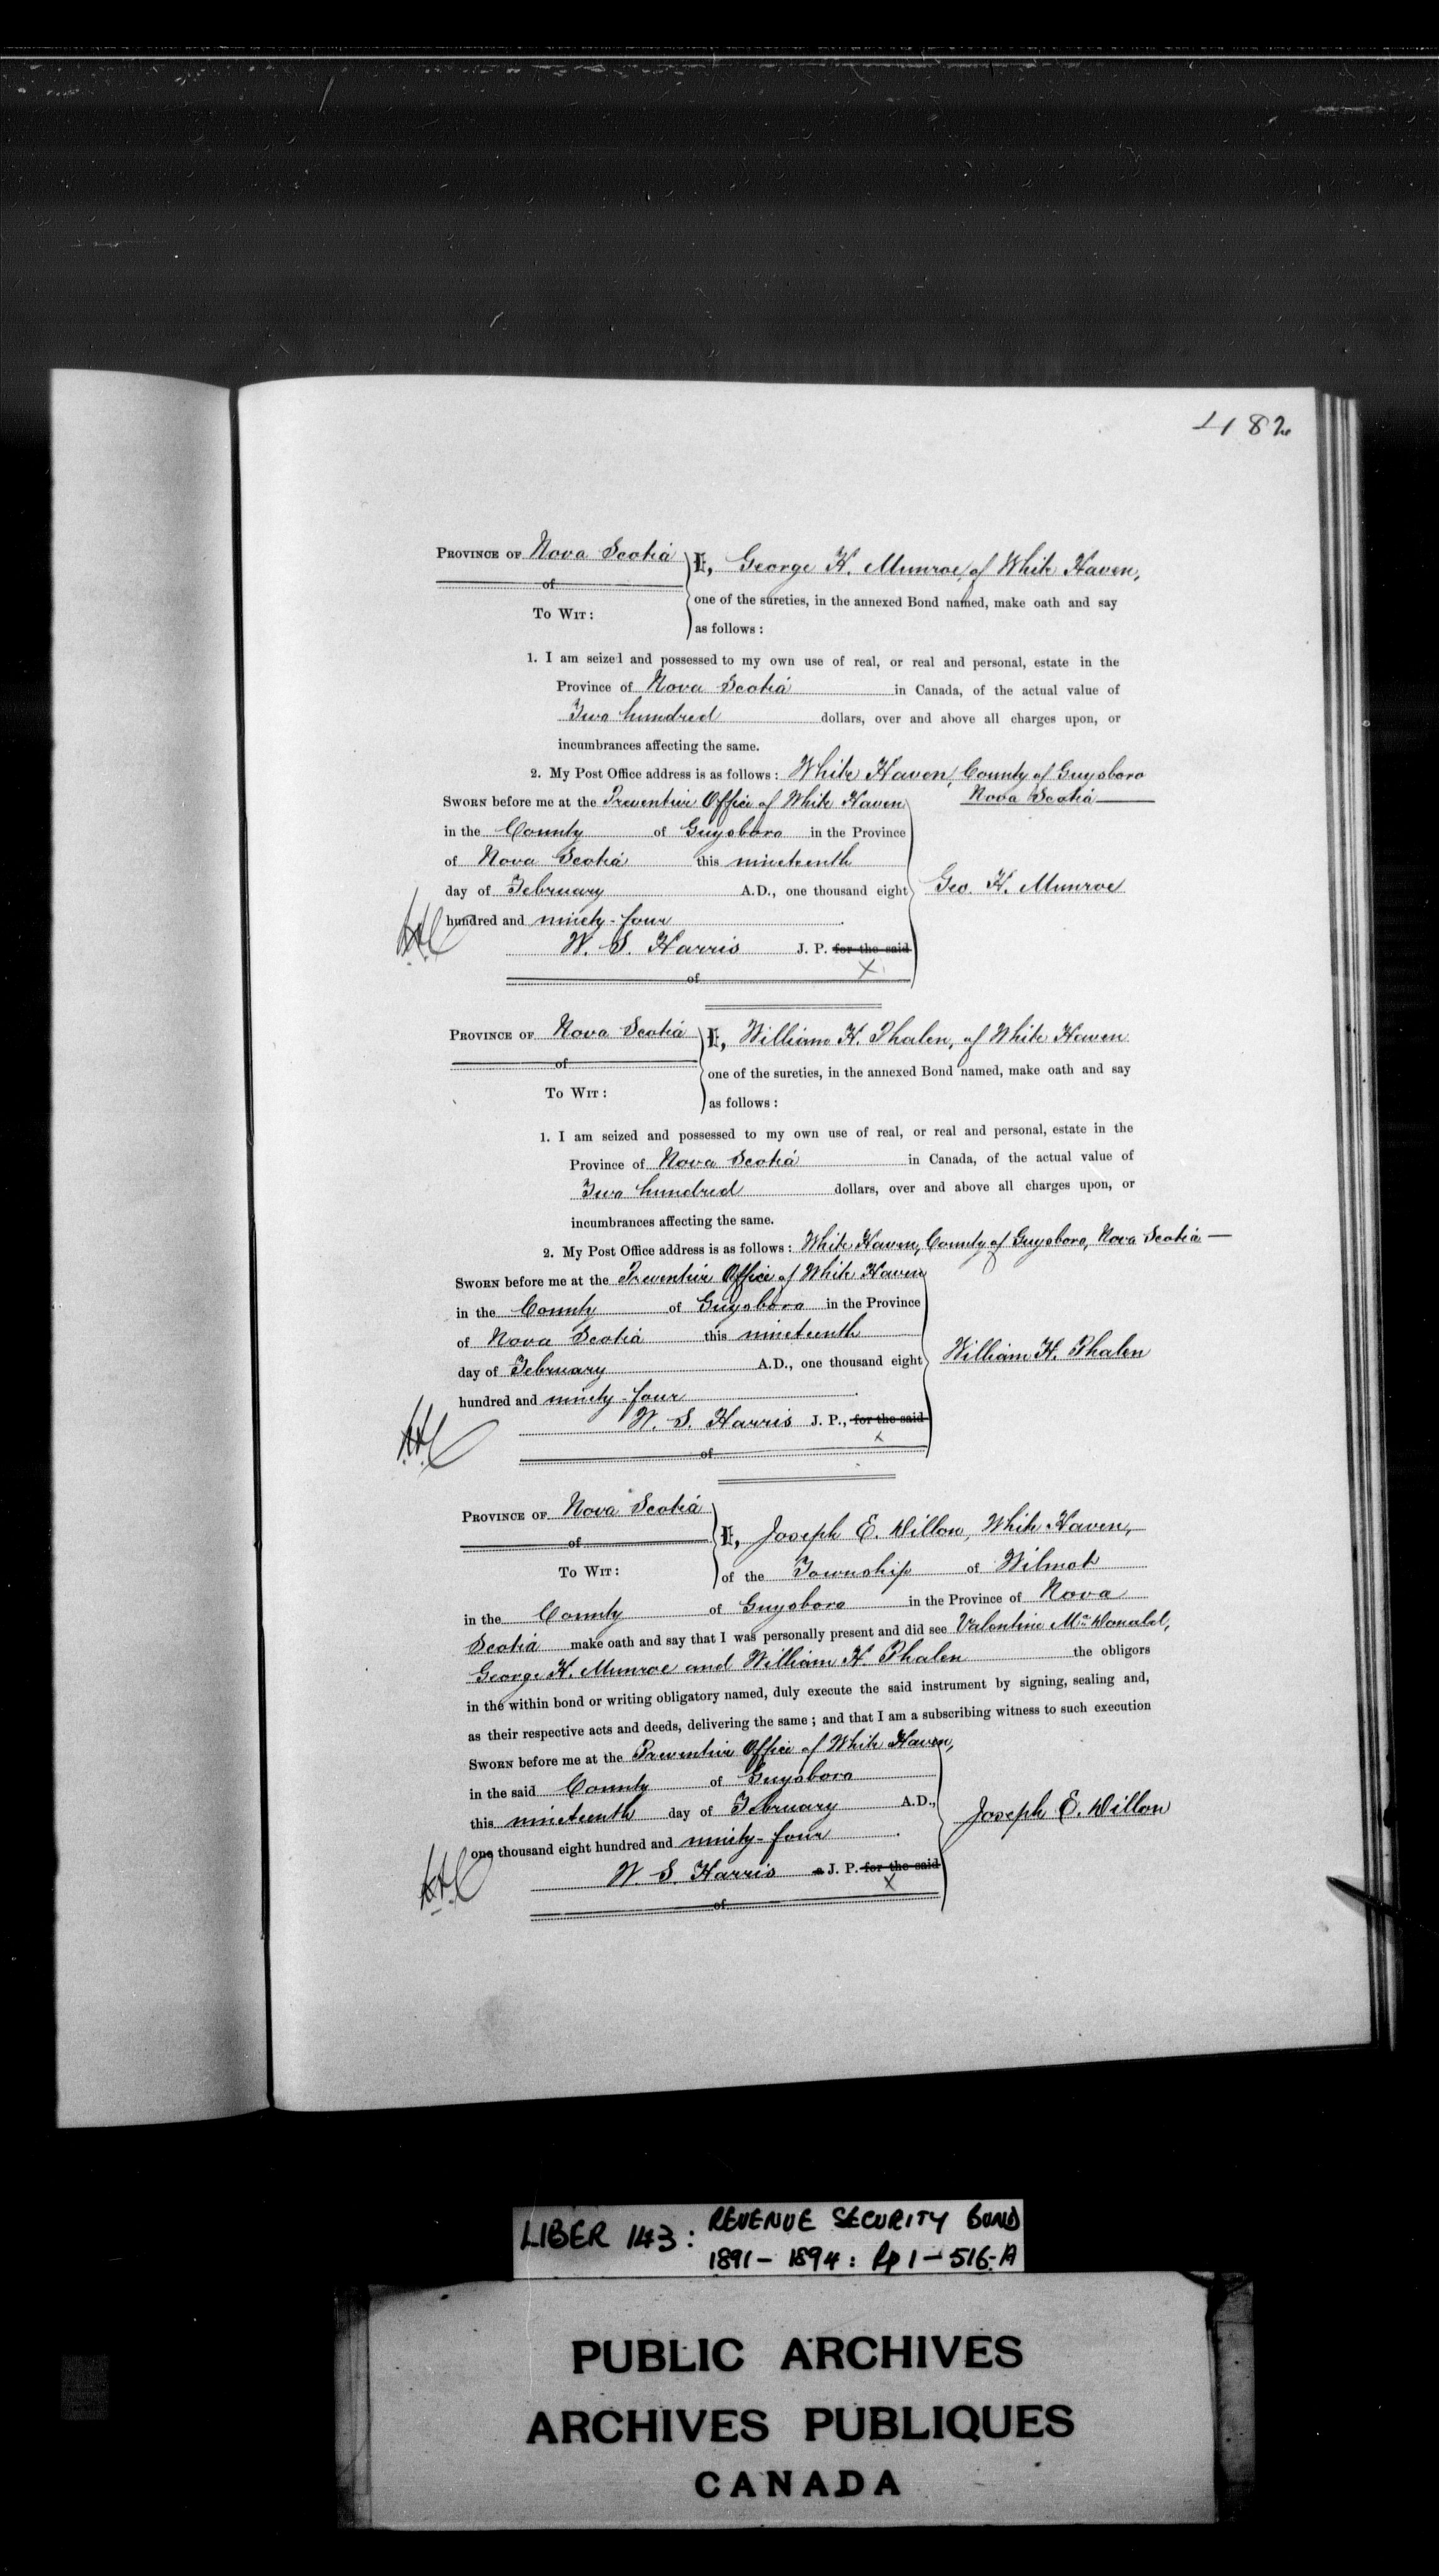 482
PROVINCE OF Nova Scotia
of
TO WIT:
I, George H. Munroe, of White Haven,
one of the sureties, in the annexed Bond named, make oath and say
as follows:
1. I am seized and possessed to my own use of real, or real and personal, estate in the
Province of Nova Scotia in Canada, of the actual value of
Two hundred dollars, over and above all charges upon, or
incumbrances affecting the same.
2. My Post Office address is as follows: White Haven, County of Guysboro
Nova Scotia
SWORN before me at the Preventive Office of White Haven
in the County of Guysboro in the Province
of Nova Scotia this nineteenth
day of February A.D., one thousand eight
hundred and ninety-four
Geo. H. Munroe
W. S. Harris J. P. for the said
X
of
PROVINCE OF Nova Scotia
of
TO WIT:
I, William H. Phalen, of White Haven
one of the sureties, in the annexed Bond named, make oath and say
as follows:
1. I am seized and possessed to my own use of real, or real and personal, estate in the
Province of Nova Scotia in Canada, of the actual value of
Two hundred dollars, over and above all charges upon, or
incumbrances affecting the same.
2. My Post Office address is as follows: White Haven, County of Guysboro, Nova Scotia —
SWORN before me at the Preventive Office of White Haven
in the County of Guysboro in the Province
of Nova Scotia this nineteenth
day of February A.D., one thousand eight
hundred and ninety-four
William H. Phalen
W. S. Harris J. P., for the said
x
of
PROVINCE OF Nova Scotia
of
TO WIT:
I, Joseph E. Dillon, White Haven,
of the Township of Wilmot
in the County of Guysboro in the Province of Nova
Scotia make oath and say that I was personally present and did see Valentine McDonald,
George H. Munroe and William H. Phalen the obligors
in the within bond or writing obligatory named, duly execute the said instrument by signing, sealing and,
as their respective acts and deeds, delivering the same; and that I am a subscribing witness to such execution
SWORN before me at the Preventive Office of White Haven,
in the said County of Guysboro
this nineteenth day of February A.D.,
one thousand eight hundred and ninety-four
Joseph E. Dillon
W. S. Harris a J. P. for the said
X
of
LIBER 143: REVENUE SECURITY BOND
1891-1894: Pp 1-516-A
PUBLIC ARCHIVES
ARCHIVES PUBLIQUES
CANADA